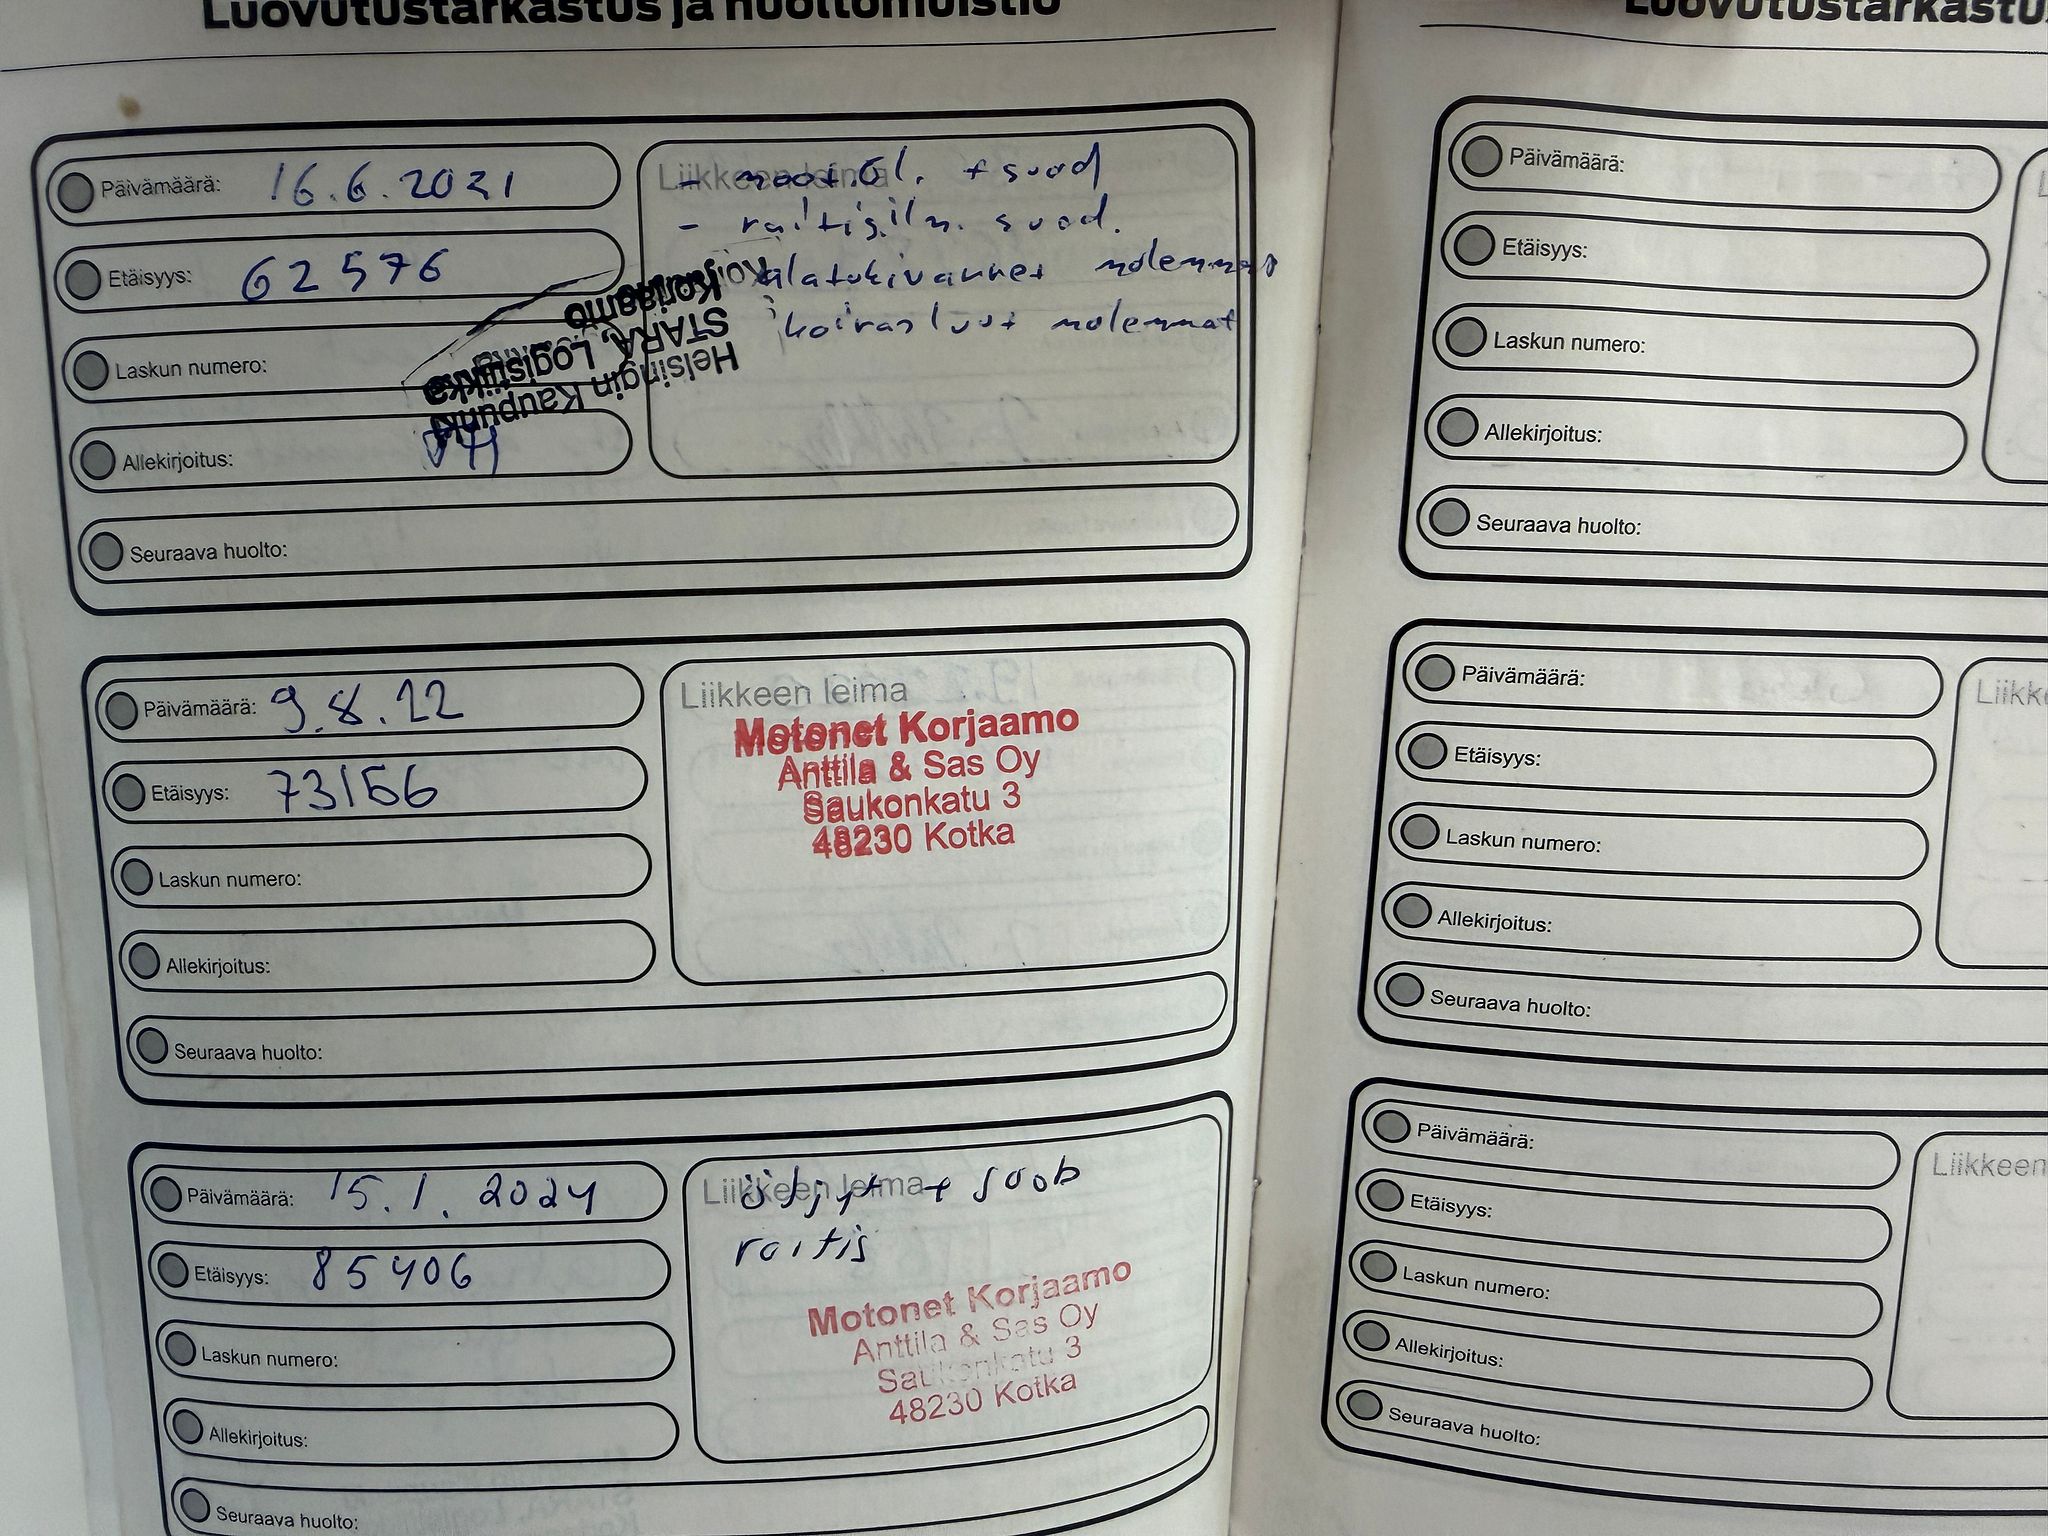 Luovutustarkastus ja huoltomuistio
Päivämäärä: 16.6.2021
Etäisyys: 62576
Laskun numero:
Allekirjoitus:
Seuraava huolto:
Liikkeen leima
- moot.öl. + suod
- raitisilm. suod.
alatukivarret molemmat
koiranluut molemmat
Helsingin Kaupunki
STARA, Logistiikka
Korjaamo
Päivämäärä: 9.8.22
Etäisyys: 73156
Laskun numero:
Allekirjoitus:
Seuraava huolto:
Liikkeen leima
Motonet Korjaamo
Anttila & Sas Oy
Saukonkatu 3
48230 Kotka
Päivämäärä: 15.1.2024
Etäisyys: 85406
Laskun numero:
Allekirjoitus:
Seuraava huolto:
Liikkeen leima
öljyt + suod
raitis
Motonet Korjaamo
Anttila & Sas Oy
Saukonkatu 3
48230 Kotka
Luovutustarkastus
Päivämäärä:
Etäisyys:
Laskun numero:
Allekirjoitus:
Seuraava huolto:
Päivämäärä:
Etäisyys:
Laskun numero:
Allekirjoitus:
Seuraava huolto:
Liikke
Päivämäärä:
Etäisyys:
Laskun numero:
Allekirjoitus:
Seuraava huolto:
Liikkeen